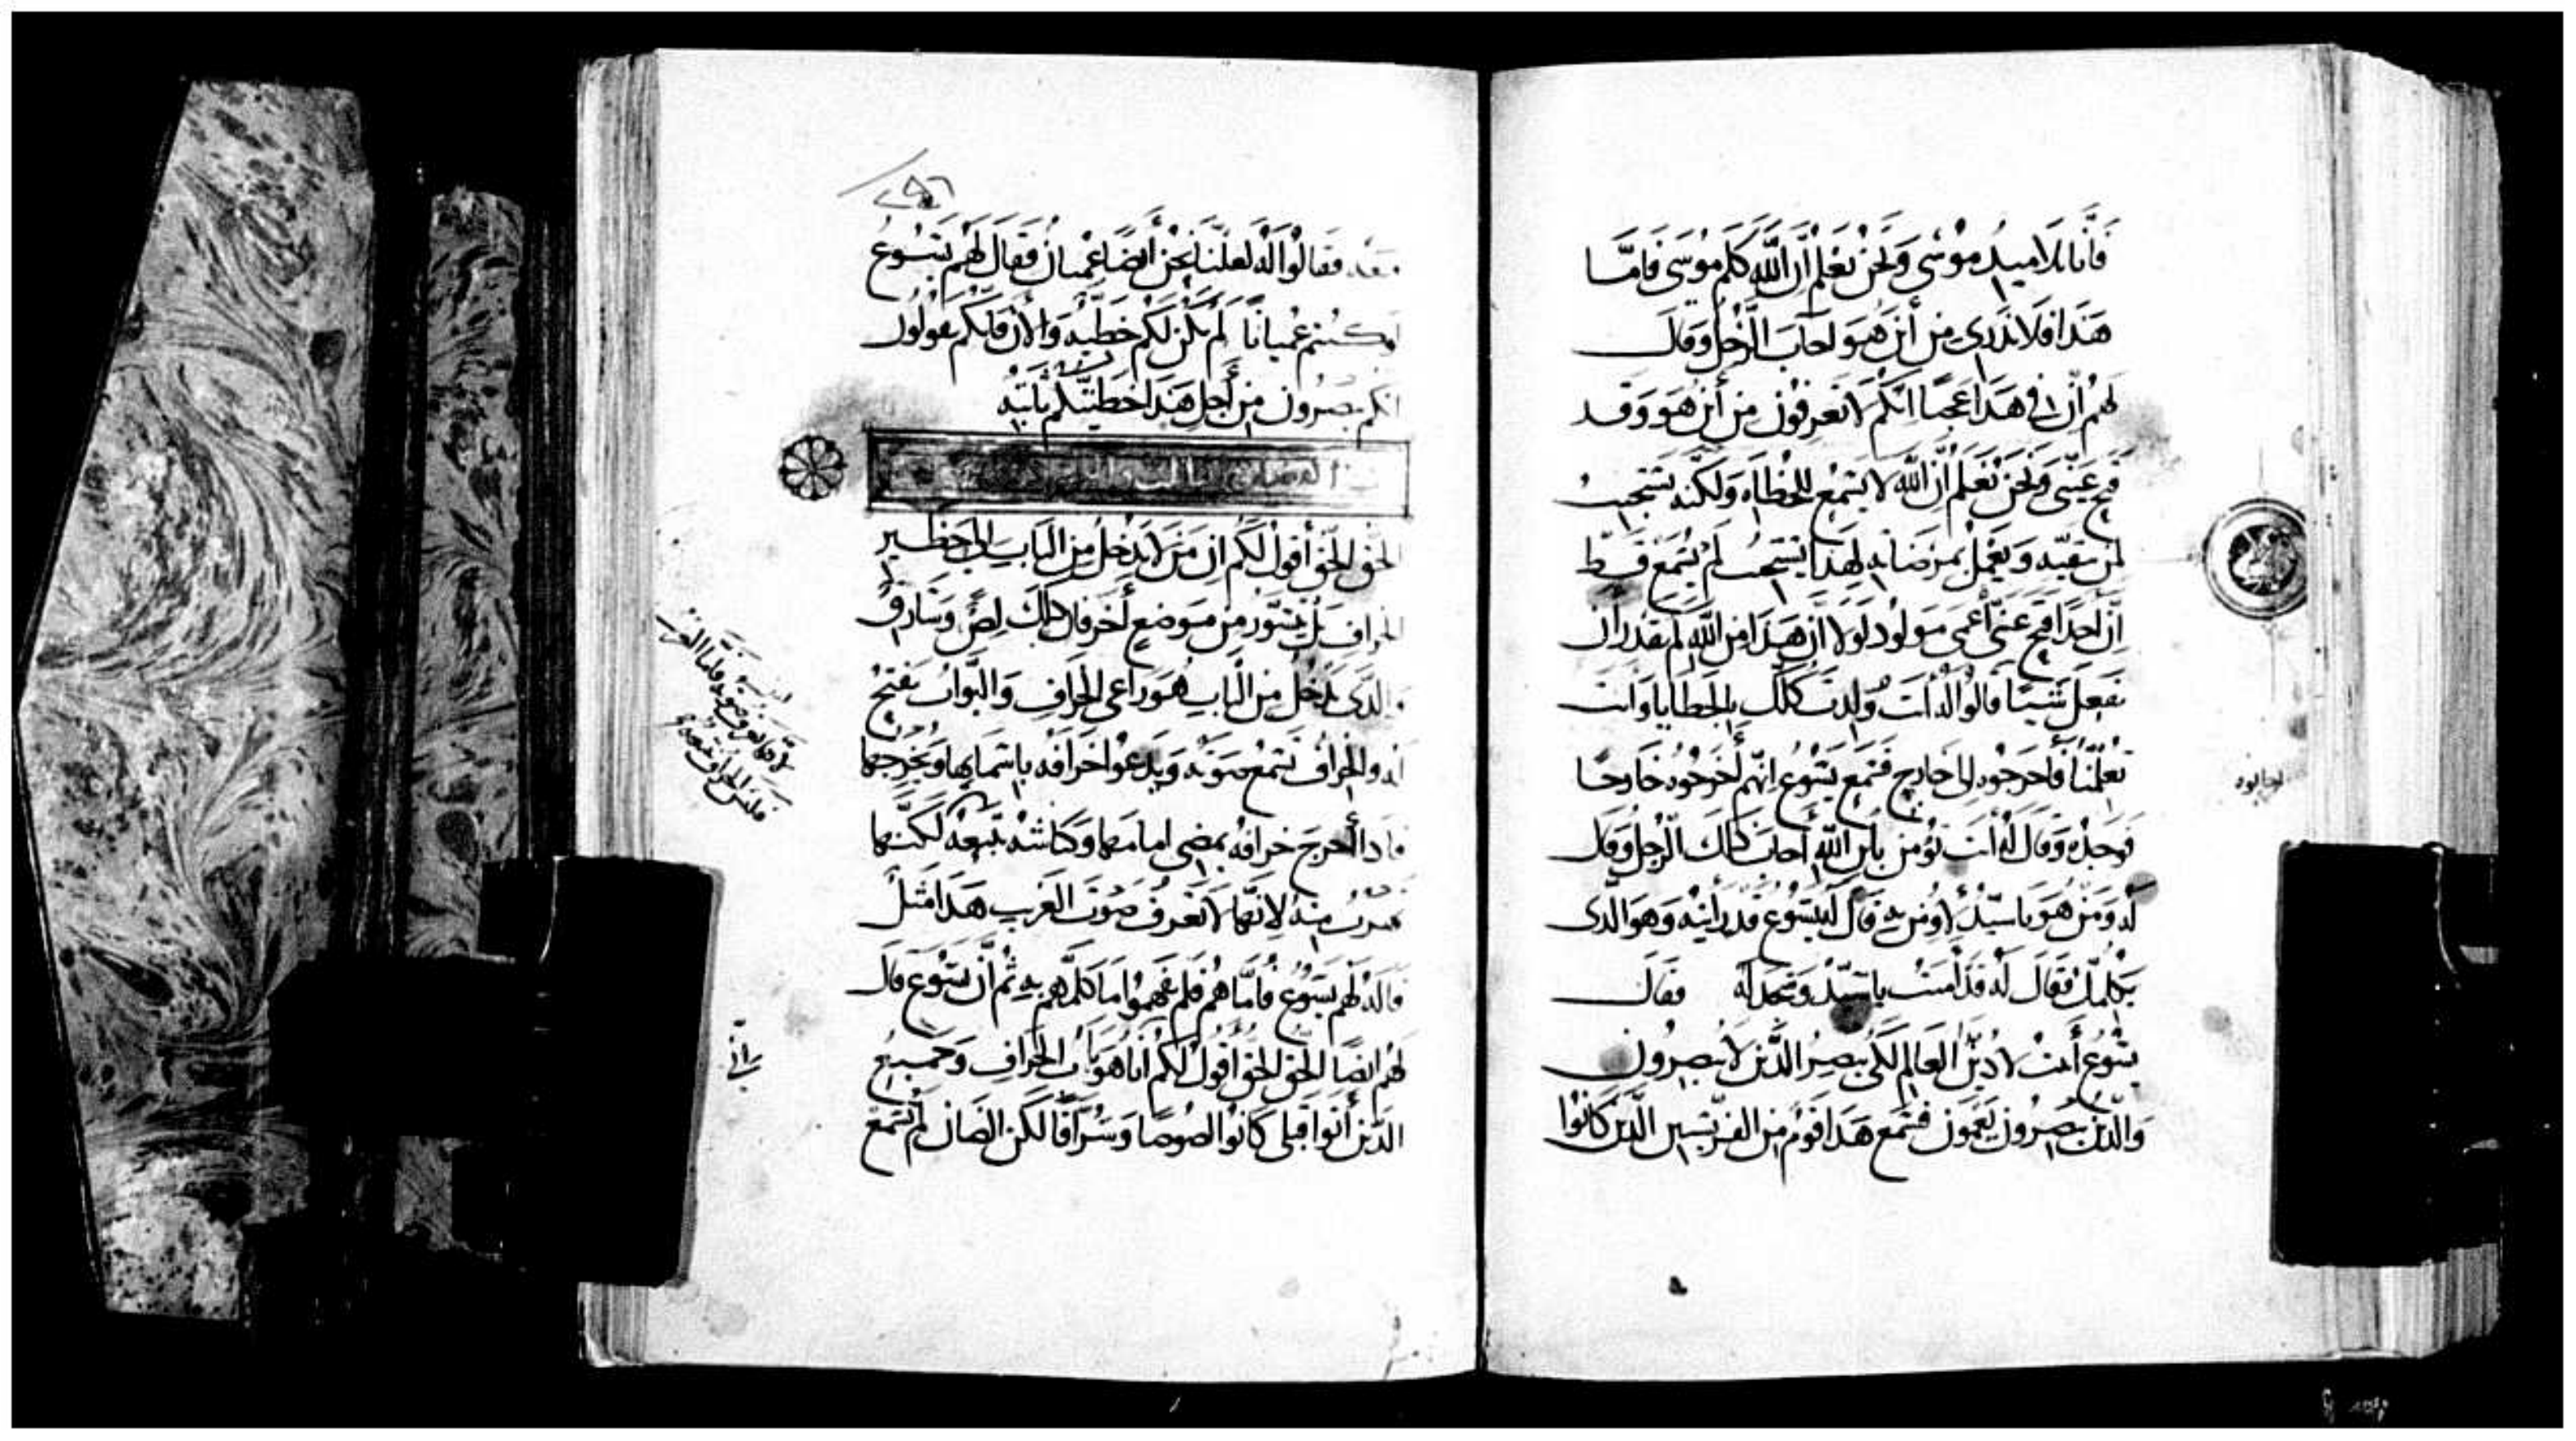 فَأَنَا تلاميذ موسَى وَنَحْنُ نَعْلَمُ أَنَّ اللَّهَ كَلَّمَ مُوسَى فَامَّا
هَذَا فَلَا نَدْرِي مِن أَيْنَ هُوَ اجَابَ الرَّجُل وَقَالَ
لَهُم انّ في هَذَا عَجبًا انّكُم لَا تَعرفُونَ مِن أينَ هُوَ وَقَد
فتح عَينَيّ وَنَحْنُ نَعْلَمُ أَنَّ اللَّه لا يَسْمَعُ للخُطَاه وَلَكِنّه يَستَجيبُ
لمن يتقيه وَيَعْمَلُ بمرضَاته لِهَذَا يَسْتَجيبُ لَمْ يُسْمَع قَط
اِنّ احَدًا فتح عَينَي أعْمَى مَولُود لَولَا أنّ هَذَا مِن اللَّهِ لَم يقدر أن
يَفعَلَ شَيئًا قَالُوا لَهُ أَنتَ وُلِدتَ كُلّكَ بالخَطَايَا وَانتَ
تُعَلِّمنَا فَاخرجُوه إلى خارج فَسَمِعَ يَسُوع انّهم أَخرَجُوه خَارجًا
فَوجَدَه وَقَالَ لَهُ أَنتَ تُؤمن بِابن اللَّهِ أَجَابَ ذَلكَ الرَّجُل وَقَالَ
لَه وَمَن هُوَ يَا سَيّدُ لأومِن بِهِ قَالَ لَه يَسُوع قَد رَأَيتَه وَهوَ الّذى
يُكَلِّمكَ فَقَالَ لَه قَد آمَنتُ يا سَيّدُ وَسَجَدَ لَهُ فقَالَ
يَسُوع أَتيتُ لأدينَ العَالِم لكَى يبصِرُ الّذينَ لَا يُبصِرُون
وَالّذينَ يُبصِرُونَ يَعمَون فسَمِعَ هَذَا قَومٌ مِن الفريسيين الّذينَ كَانُوا
معه فقَالُوا لَهُ لَعَلّنَا نحن أَيضًا عميان فَقَال لَهُم يَسُوعُ
لو كُنتم عُميانًا لَم يكن لَكُم خَطيّه وَالآن فانكم تقولُون
انكم تبصرُون مِن أَجل هَذَا خطيّتكم ثابته
الحَق الحَق أَقُول لَكُم انّ مَن لَا يَدخلُ مِن البَاب إلى حَظير
الخراف بَل يتسَوّر مِن مَوضع أخَر فان ذلكَ لِصٌّ وَسَارِقٌ
والّذى يَدخل مِن الباب هُوَ رَاعى الخرَاف وَالبَوّاب يَفتحُ
له والخرافُ تسمعُ صَوته وَيَدعُوا خَرافه بِاسمايها وَيُخرجها
فاذا أخرج خرافَهُ يمضى امامها وكباشه تتبعه لكنها
تهرب منه لانها لَا تعرفُ صَوتَ الغَريب هَذَا مَثَل
قاله لهم يَسُوع فَامّا هُم فلم يفهموا ما كلّمهم به ثُم انّ يَسُوع قَال
لهم ايضًا الحَق الحَق أَقُول لَكُم أنَا هُوَ باب الخراف وَجَميعُ
الّذين أتوا قبلى كَانُوا لصُوصًا وَسُرّاقًا لَكن الضّان لَم تَسمَعْ